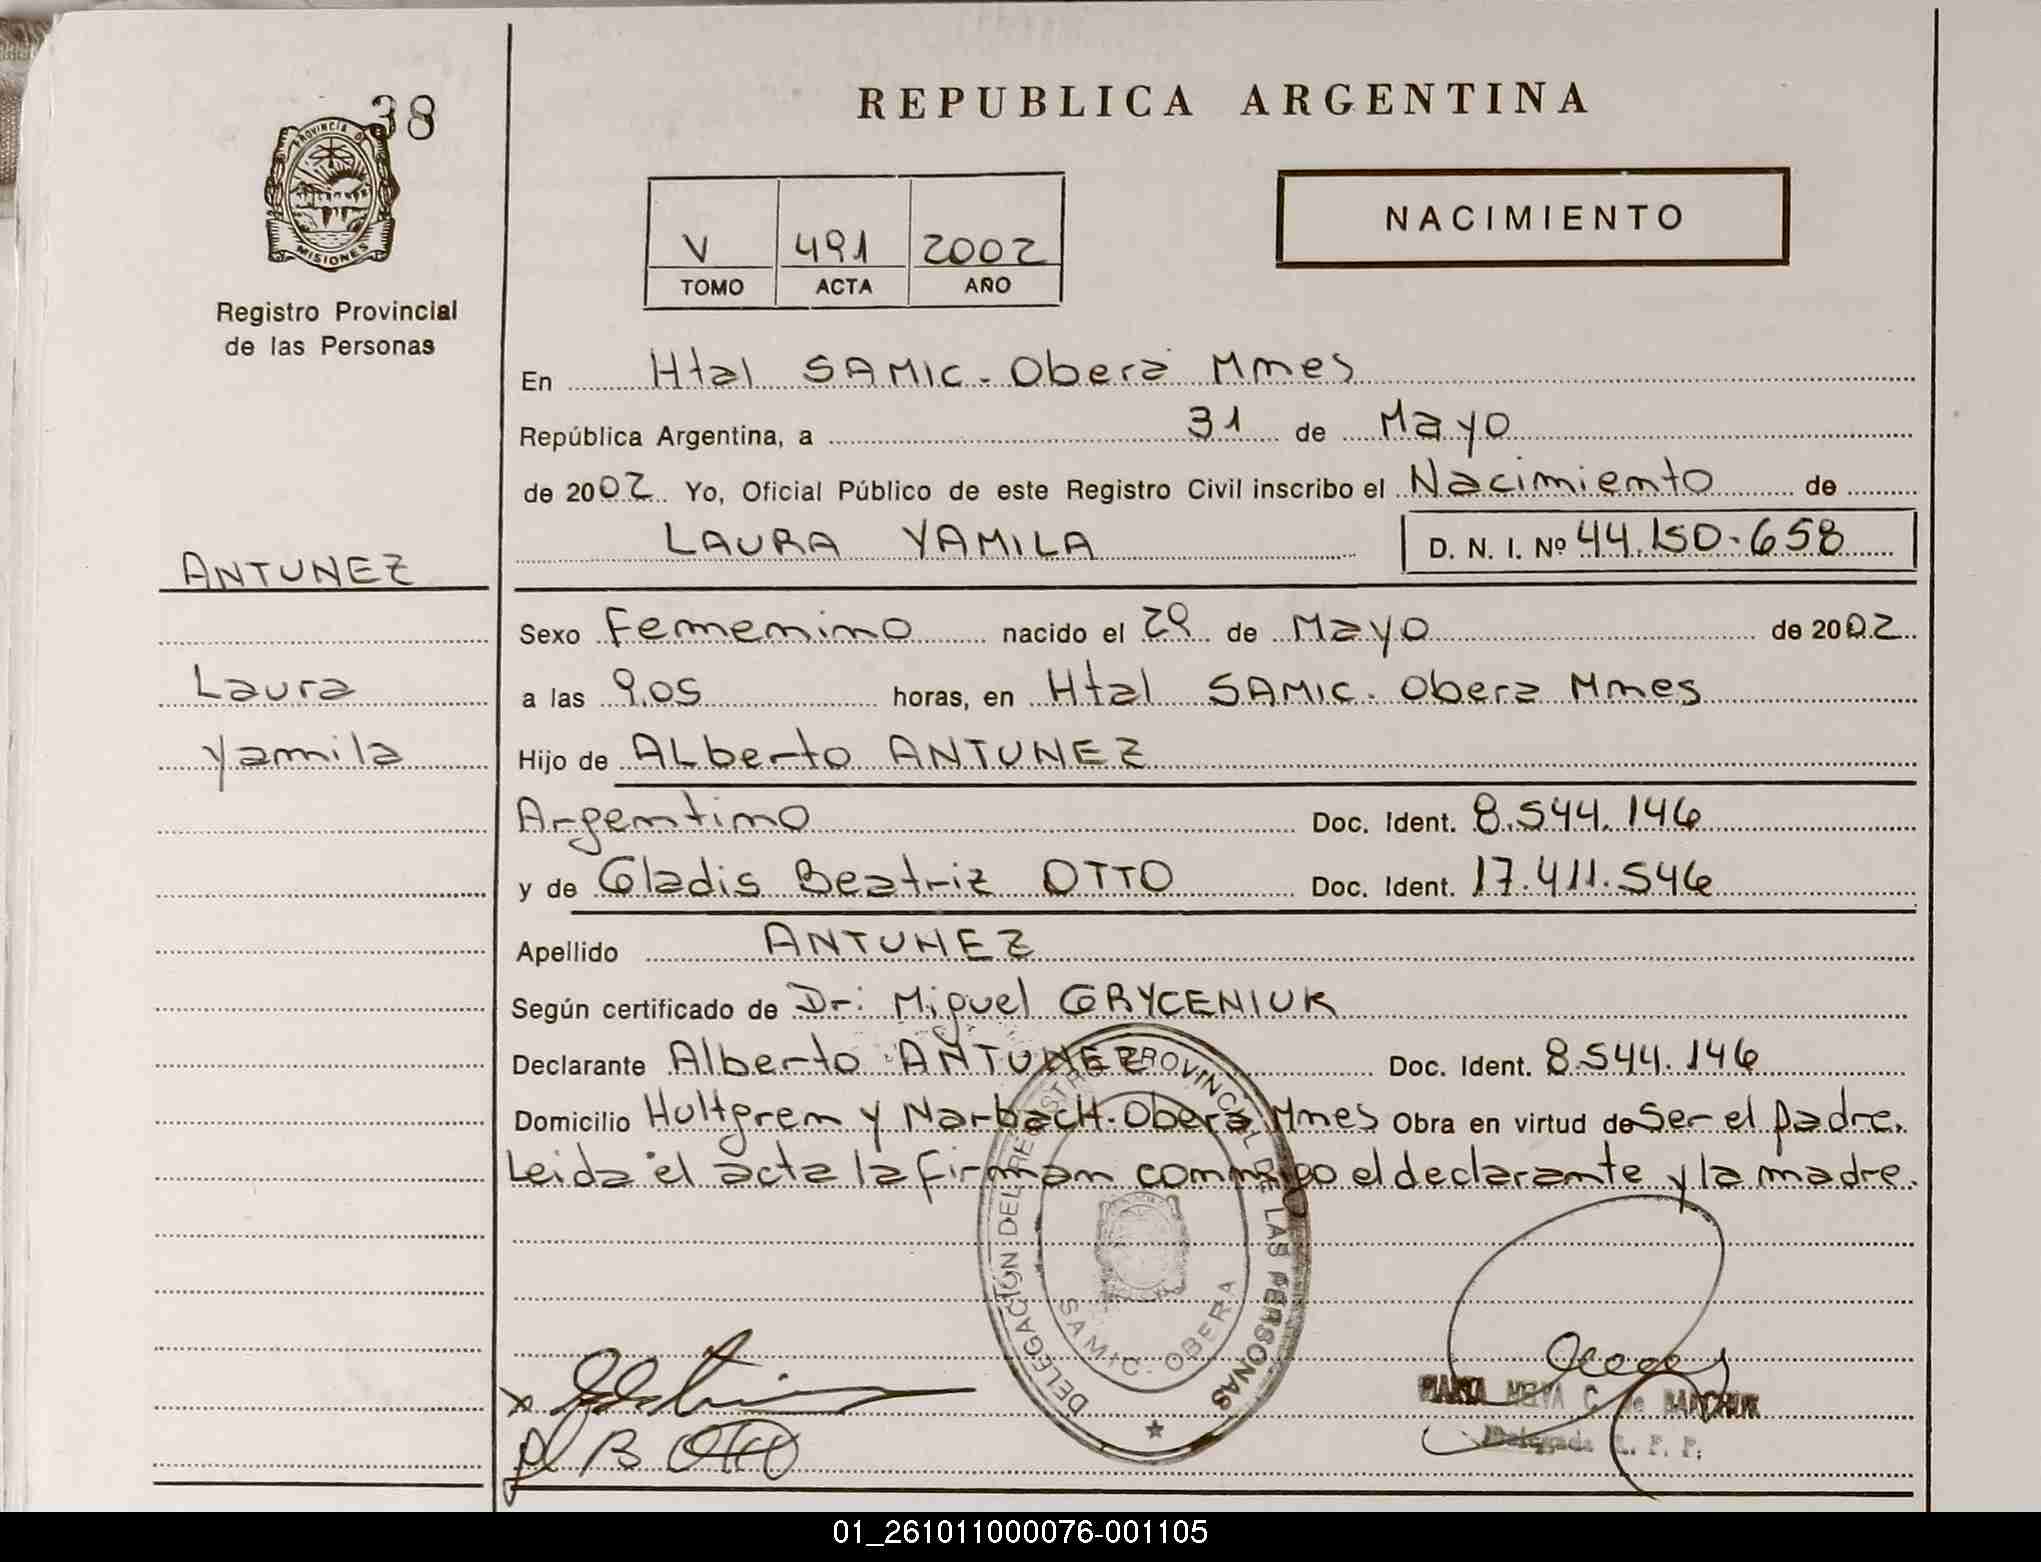 38
PROVINCIA DE
MISIONES
Registro Provincial
de las Personas
REPUBLICA ARGENTINA
V 491 2002
TOMO ACTA AÑO
NACIMIENTO
En Htal SAMIC. Oberá Mnes
República Argentina, a 31 de Mayo
de 2002 Yo, Oficial Público de este Registro Civil inscribo el Nacimiento de
LAURA YAMILA D. N. I. Nº 44.150.658
ANTUNEZ
Laura
Yamila
Sexo Femenino nacido el 29 de Mayo de 2002
a las 9.05 horas, en Htal SAMIC. Obera Mnes
Hijo de ALberto ANTUNEZ
Argentino Doc. Ident. 8.544.146
y de Gladis Beatriz OTTO Doc. Ident. 17.411.546
Apellido ANTUNEZ
Según certificado de Dr: Miguel GRYCENIUK
Declarante Alberto ANTUNEZ Doc. Ident. 8.544.146
Domicilio Hultgren y NarbacH. Oberá Mnes Obra en virtud de Ser el padre.
Leida el acta la firman conmigo el declarante y la madre.
DELEGACIÓN DEL REGISTRO PROVINCIAL DE LAS PERSONAS
SAMIC - OBERA
B Otto
C. de
Delegada R. P. P.
01_261011000076-001105